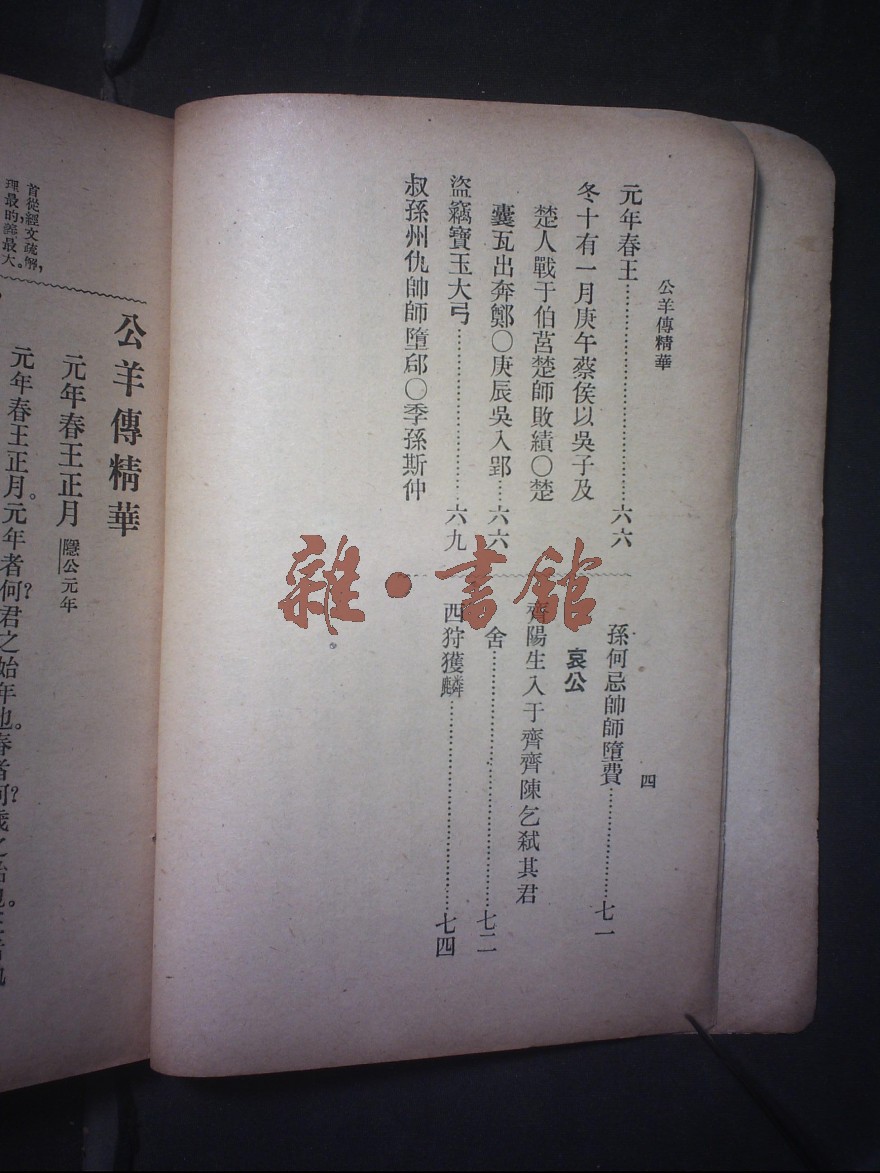 公羊傳精華
四
元年春王……六六
冬十有一月庚午蔡侯以吳子及
楚人戰于伯莒楚師敗績〇楚
囊瓦出奔鄭〇庚辰吳入郢…六六
盜竊寶玉大弓……六九
叔孫州仇帥師墮郈〇季孫斯仲
孫何忌帥師墮費……七一
哀公
齊陽生入于齊齊陳乞弒其君
舍……七二
西狩獲麟……七四
雜·書館
首從經文疏解,
理最的義最大。
公羊傳精華
元年春王正月 隱公元年
元年春王正月。元年者何?君之始年也。春者何?歲之始也。王者孰